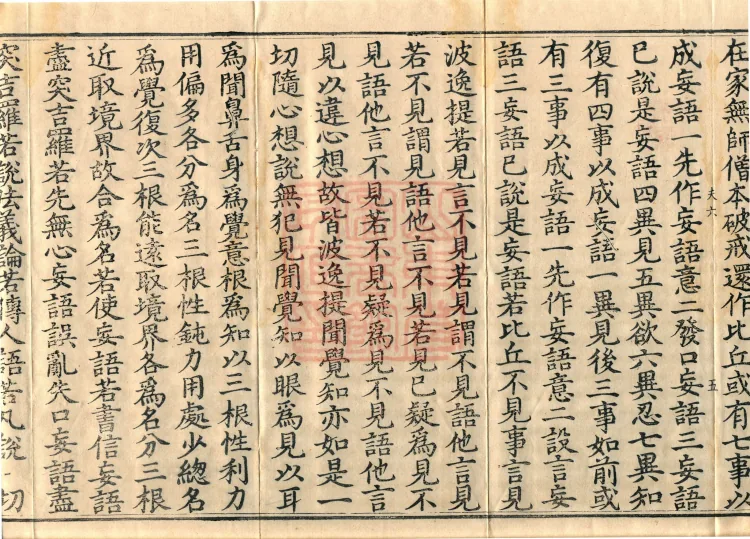 在家無師僧本破戒還作比丘或有七事以
五
成妄語一先作妄語意二發口妄語三妄語
已說是妄語四異見五異欲六異忍七異知
復有四事以成妄語一異見後三事如前或
有三事以成妄語一先作妄語意二設言妄
語三妄語已說是妄語若比丘不見事言見
波逸提若見言不見若見謂不見語他言見
若不見謂見語他言不見若見已疑爲見不
見語他言不見若不見疑爲見不見語他言
見以違心想故皆波逸提聞覺知亦如是一
切隨心想說無犯見聞覺知以眼爲見以耳
爲聞鼻舌身爲覺意根爲知以三根性利力
用偏多各分爲名三根性鈍力用處少緫名
爲覺復次三根能遠取境界各爲名分三根
近取境界故合爲名若使妄語若書信妄語
盡突吉羅若先無心妄語誤亂失口妄語盡
突吉羅若說法義論若傳人語若凡說一切